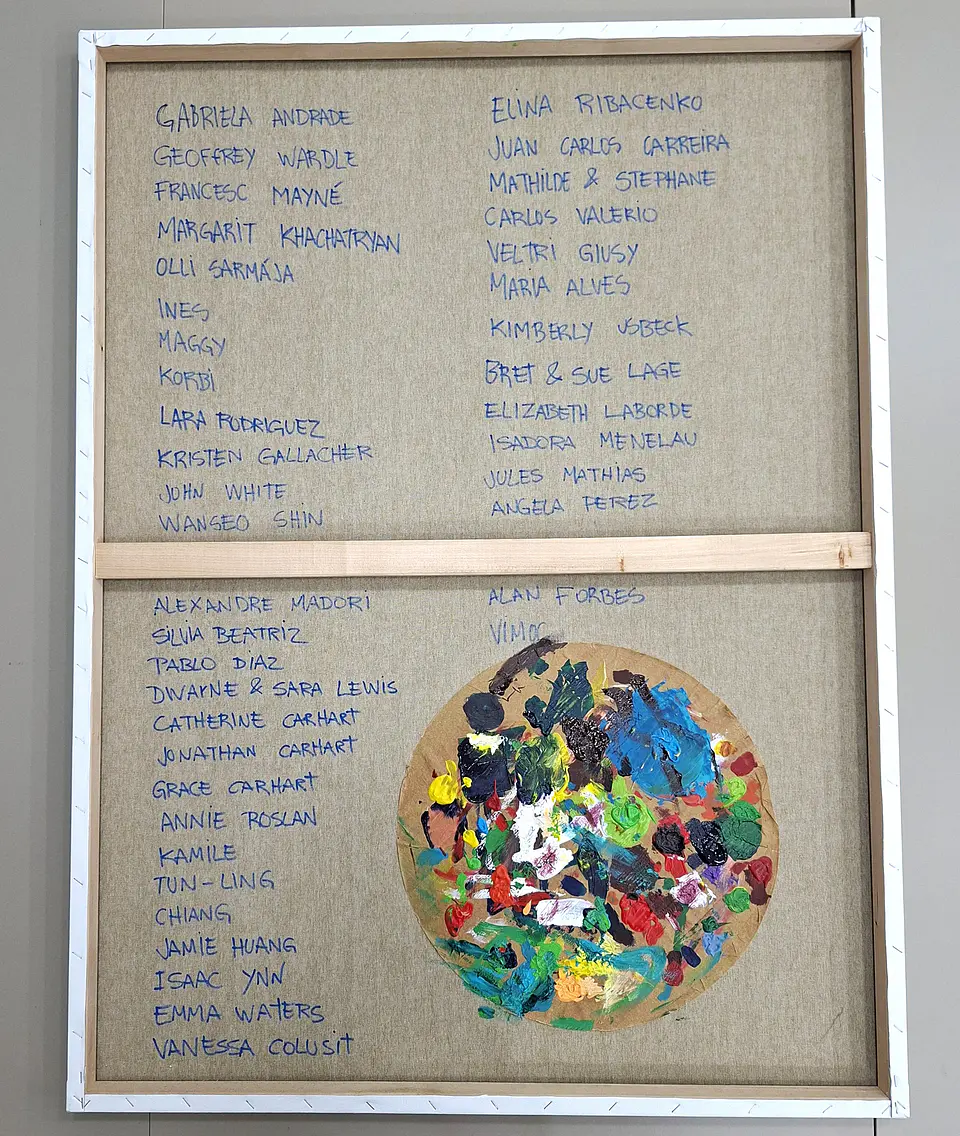 GABRIELA ANDRADE
GEOFFREY WARDLE
FRANCESC MAYNÉ
MARGARIT KHACHATRYAN
OLLI SARMÁJA
INES
MAGGY
KORBI
LARA RODRIGUEZ
KRISTEN GALLACHER
JOHN WHITE
WANSEO SHIN
ALEXANDRE MADORI
SILVIA BEATRIZ
PABLO DIAZ
DWAYNE & SARA LEWIS
CATHERINE CARHART
JONATHAN CARHART
GRACE CARHART
ANNIE ROSLAN
KAMILE
TUN-LING
CHIANG
JAMIE HUANG
ISAAC YNN
EMMA WATERS
VANESSA COLUSIT
ELINA RIBACENKO
JUAN CARLOS CARREIRA
MATHILDE & STEPHANE
CARLOS VALERIO
VELTRI GIUSY
MARIA ALVES
KIMBERLY USBECK
BRET & SUE LAGE
ELIZABETH LABORDE
ISADORA MENELAU
JULES MATHIAS
ANGELA PEREZ
ALAN FORBES